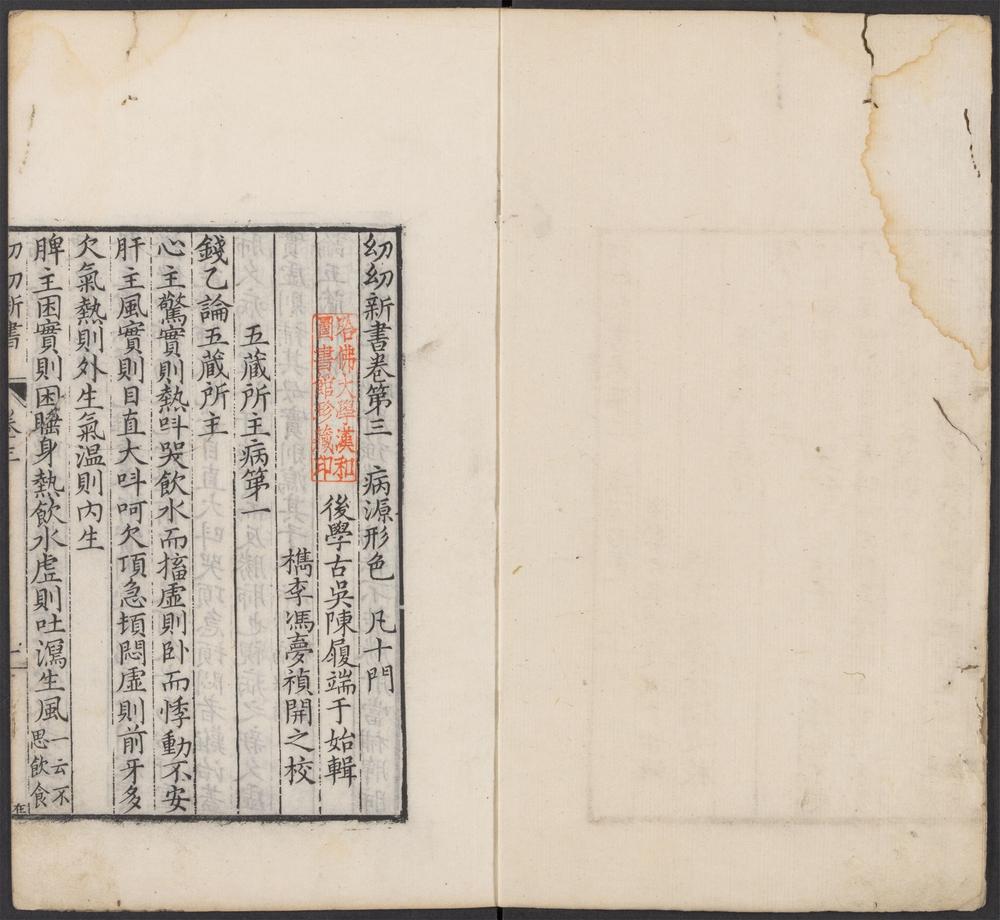 幼幼新書卷第三 病源形色 凡十門
後學古吳陳履端于始輯
檇李馮夢禎開之校
哈佛大學漢和
圖書館珍藏印
五蔵所主病第一
錢乙論五蔵所主
心主驚實則熱呌哭飲水而搐虛則卧而悸動不安
肝主風實則目直大呌呵欠項急頓悶虛則前牙多
欠氣熱則外生氣温則內生
脾主困實則困睡身熱飲水虛則吐瀉生風一云不
思飲食
幼幼新書 卷三 一